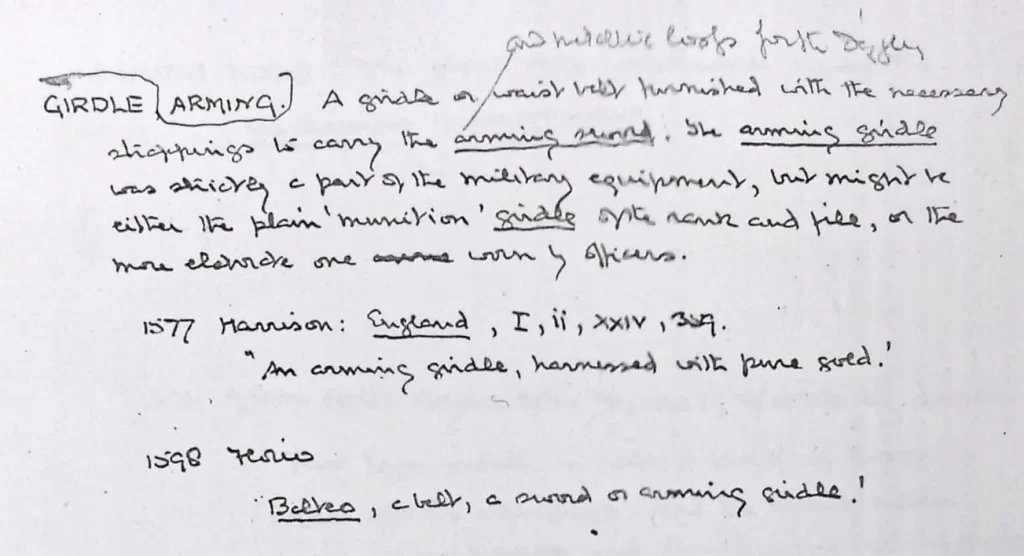 and metallic loops for the
GIRDLE ARMING. A girdle or waist belt furnished with the necessary
strappings to carry the arming sword. The arming girdle
was strictly a part of the military equipment, but might be
either the plain 'munition' girdle of the rank and file, or the
more elaborate one worn by officers.
1577 Harrison: England, I, ii, XXIV, 359.
"An arming girdle, harnessed with pure gold.'
1598 Florio
'Balteo, a belt, a sword or arming girdle.'